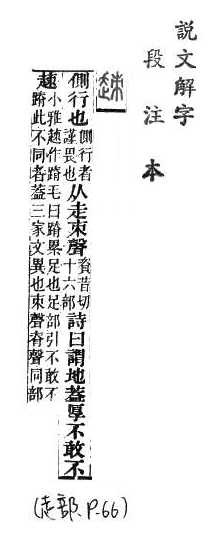 說文解字
段注本
趚
側行也側行者謹畏也从走束聲資昔切十六部詩曰謂地蓋厚不敢不
趚小雅趚作蹐毛曰蹐累足也足部引不敢不蹐此不同者蓋三家文異也束聲脊聲同部
(走部、P.66)